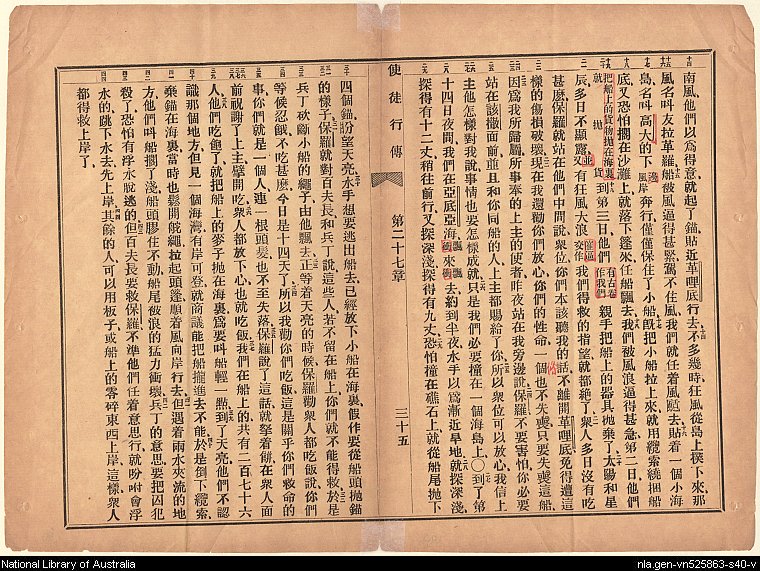 南風他們以爲得意就起了錨貼近革哩底行去不多幾時狂風從島上撲下來那
風名叫友拉革羅船被風逼得甚緊駕不住風我們就任着風颳去貼着一個小海
島名叫高大的下邊風岸奔行僅僅保住了小船旣把小船拉上來就用纜索繞捆船
底又恐怕擱在沙灘上就落下篷來任船飄去我們被風浪逼得甚急第二日他們
把船上的貨物拋在海裏就拋貨到第三日他們有古卷作我們親手把船上的器具拋棄了太陽和星
辰多日不顯露並又有狂風大浪催逼交作我們得救的指望就都絕了衆人多日沒有吃
甚麼保羅就站在他們中間說衆位你們本該聽我的話不離開革哩底免得遭這
樣的傷損破壞現在我還勸你們放心你們的性命一個也不失喪只要失喪這船
因爲我所歸屬所事奉的上主的使者昨夜站在我旁邊說保羅不要害怕你必要
站在該撒面前並且和你同船的人上主都賜給了你所以衆位可以放心我信上
主他怎樣對我說事情也要怎樣成就只是我們必要撞在一個海島上〇到了第
十四日夜間我們在亞底亞海飄來飄去約到半夜水手以爲漸近旱地就探深淺
探得有十二丈稍往前行又探深淺探得有九丈恐怕撞在礁石上就從船尾拋下
使徒行傳 第二十七章 三十五
四個錨盼望天亮水手想要逃出船去已經放下小船在海裏假作要從船頭拋錨
的樣子保羅就對百夫長和兵丁說這些人若不留在船上你們就不能得救於是
兵丁砍斷小船的繩子由他飄去正等着天亮的時候保羅勸衆人都吃飯說你們
等候忍餓不吃甚麽今日是十四天了所以我勸你們吃飯這是關乎你們救命的
事你們就是一個人連一根頭髮也不至失落保羅說了這話就拏着餅在衆人面
前祝謝了上主擘開吃衆人都放下心也就吃飯我們在船上的共有二百七十六
人他們吃飽了就把船上的麥子拋在海裏爲要叫船輕一點到了天亮他們不認
識那個地方但見一個海灣有岸可登就商議能把船攏進去不能於是倒下纜索
棄錨在海裏當時也鬆開舵繩拉起頭篷順着風向岸行去但遇着兩水夾流的地
方他們叫船擱了淺船頭膠住不動船尾被浪的猛力衝壞兵丁的意思要把囚犯
殺了恐怕有浮水脫逃的但百夫長要救保羅不準他們任着意思行就吩咐會浮
水的跳下水去先上岸其餘的人可以用板子或船上的零碎東西上岸這樣衆人
都得救上岸了
National Library of Australia
nla.gen-vn525863-s40-v